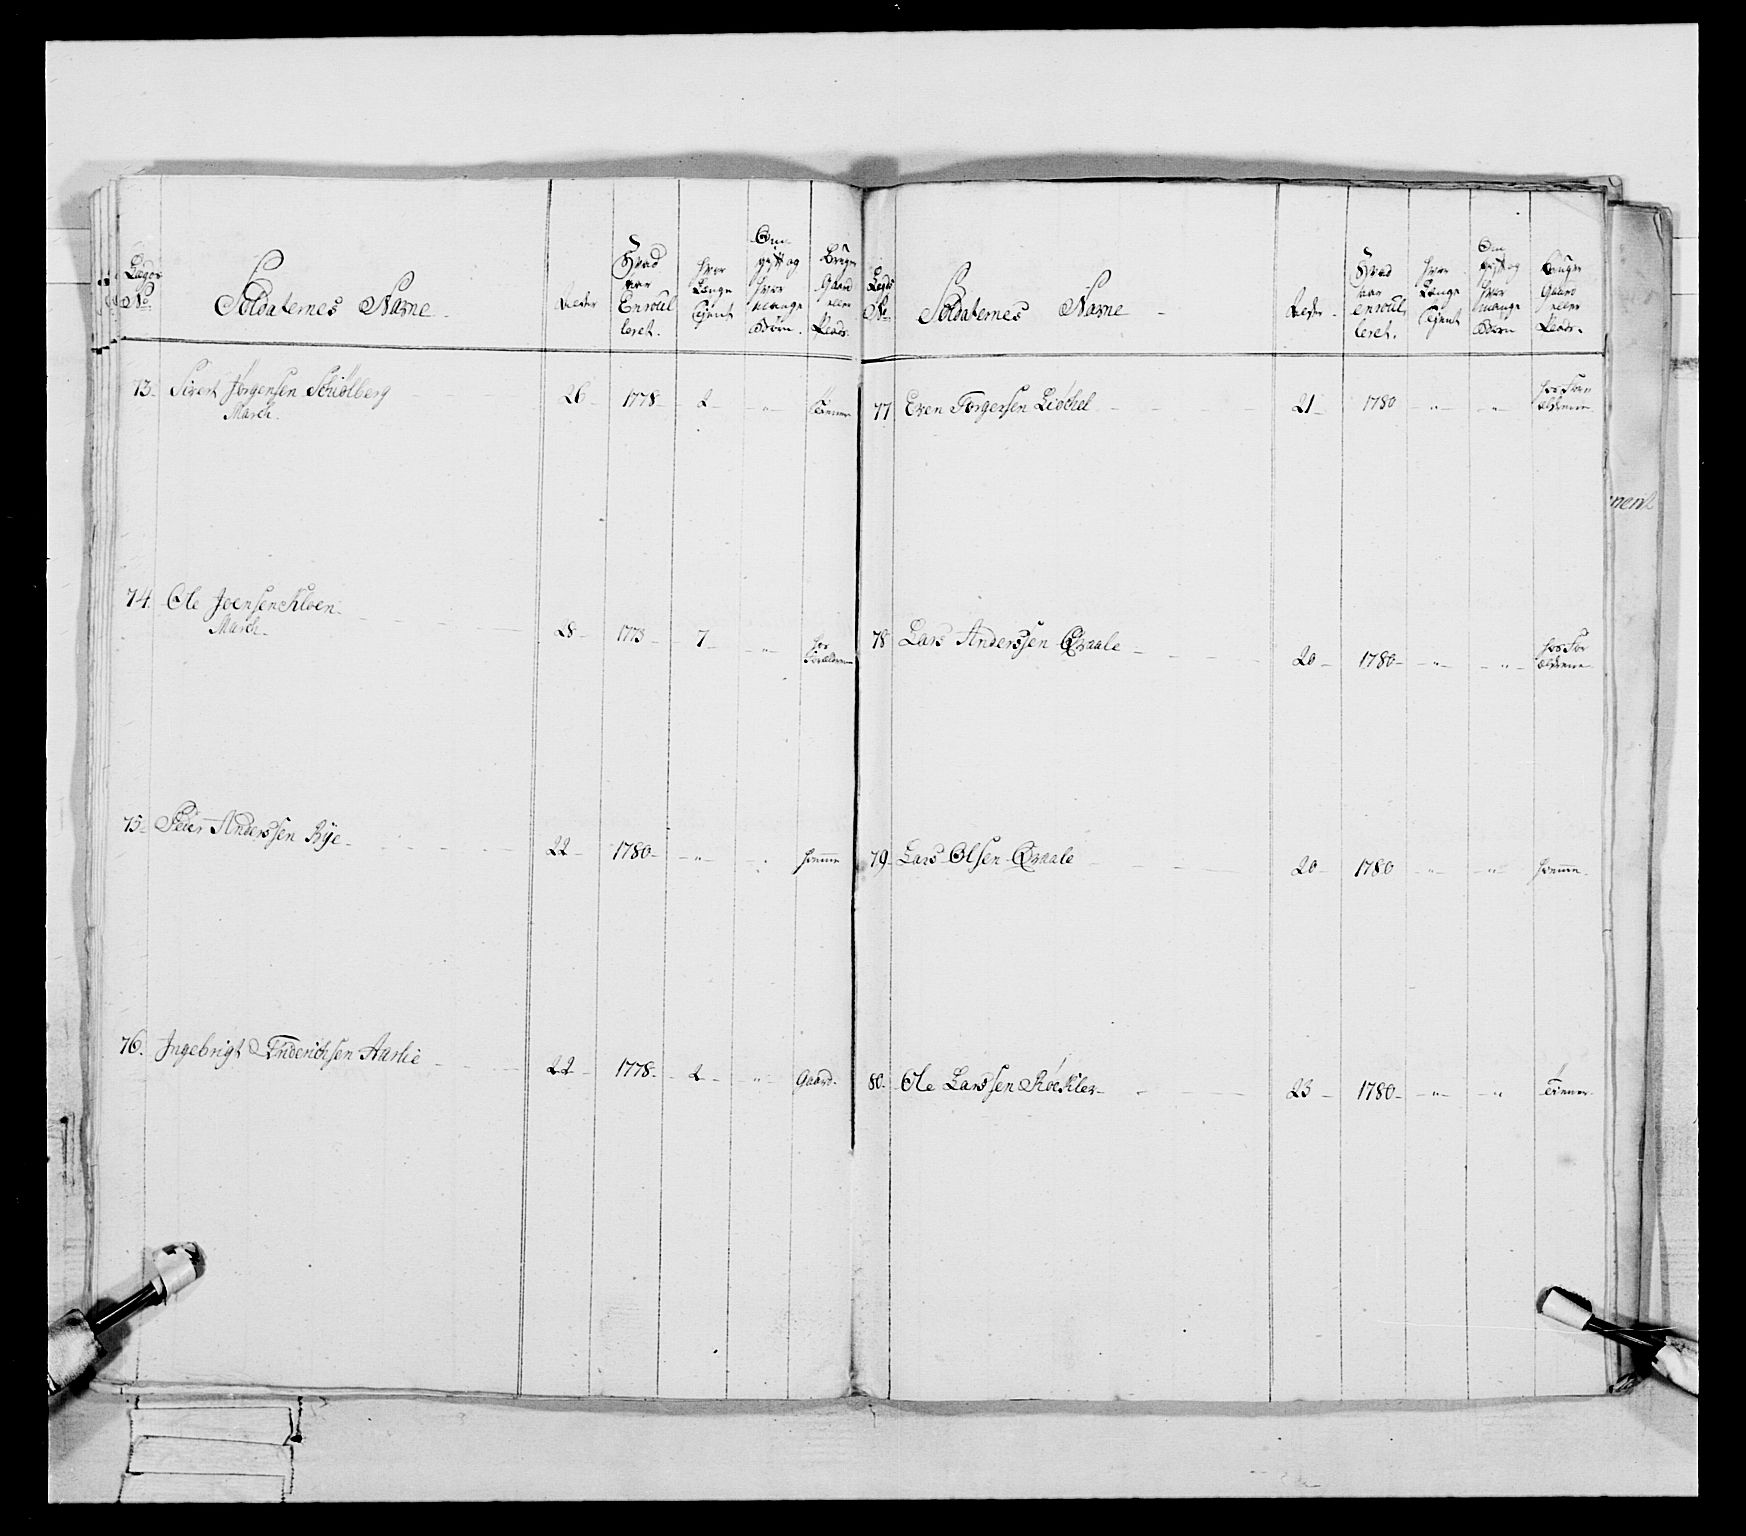 Lægds No. Soldaternes Navne Alder Hvad aar Enroulleret. Hvor Længe Tient Om gift og hvor mange Børn. Bruger Gaard eller Plads.
73. Sivert Jørgensen Schiølberg 26 1778 2 „ Tiener
March.
74. Ole Joensen Kloen 28 1773 7 „ hos Forældrene
March.
75. Peder Anderssen Rÿe 22 1780 „ „ hiemme
76. Ingebrigt Enderichsen Aarlie 22 1778 2 „ Gaard.
Lægds No. Soldaternes Navne Alder. Hvad aar enroulleret. Hvor Længe Tient Om gift og hvor mange Børn Bruger Gaard eller Plads.
77 Even Torgersen Liøchel 21 1780 „ „ hos Forældrene
78 Lars Anderssen Qvaale 20 1780 „ „ hos Forældrene
79. Lars Olsen Qvaale 20 1780 „ „ hiemme.
80. Ole Larssen Røekler 23 1780 „ „ Tiener.
ment